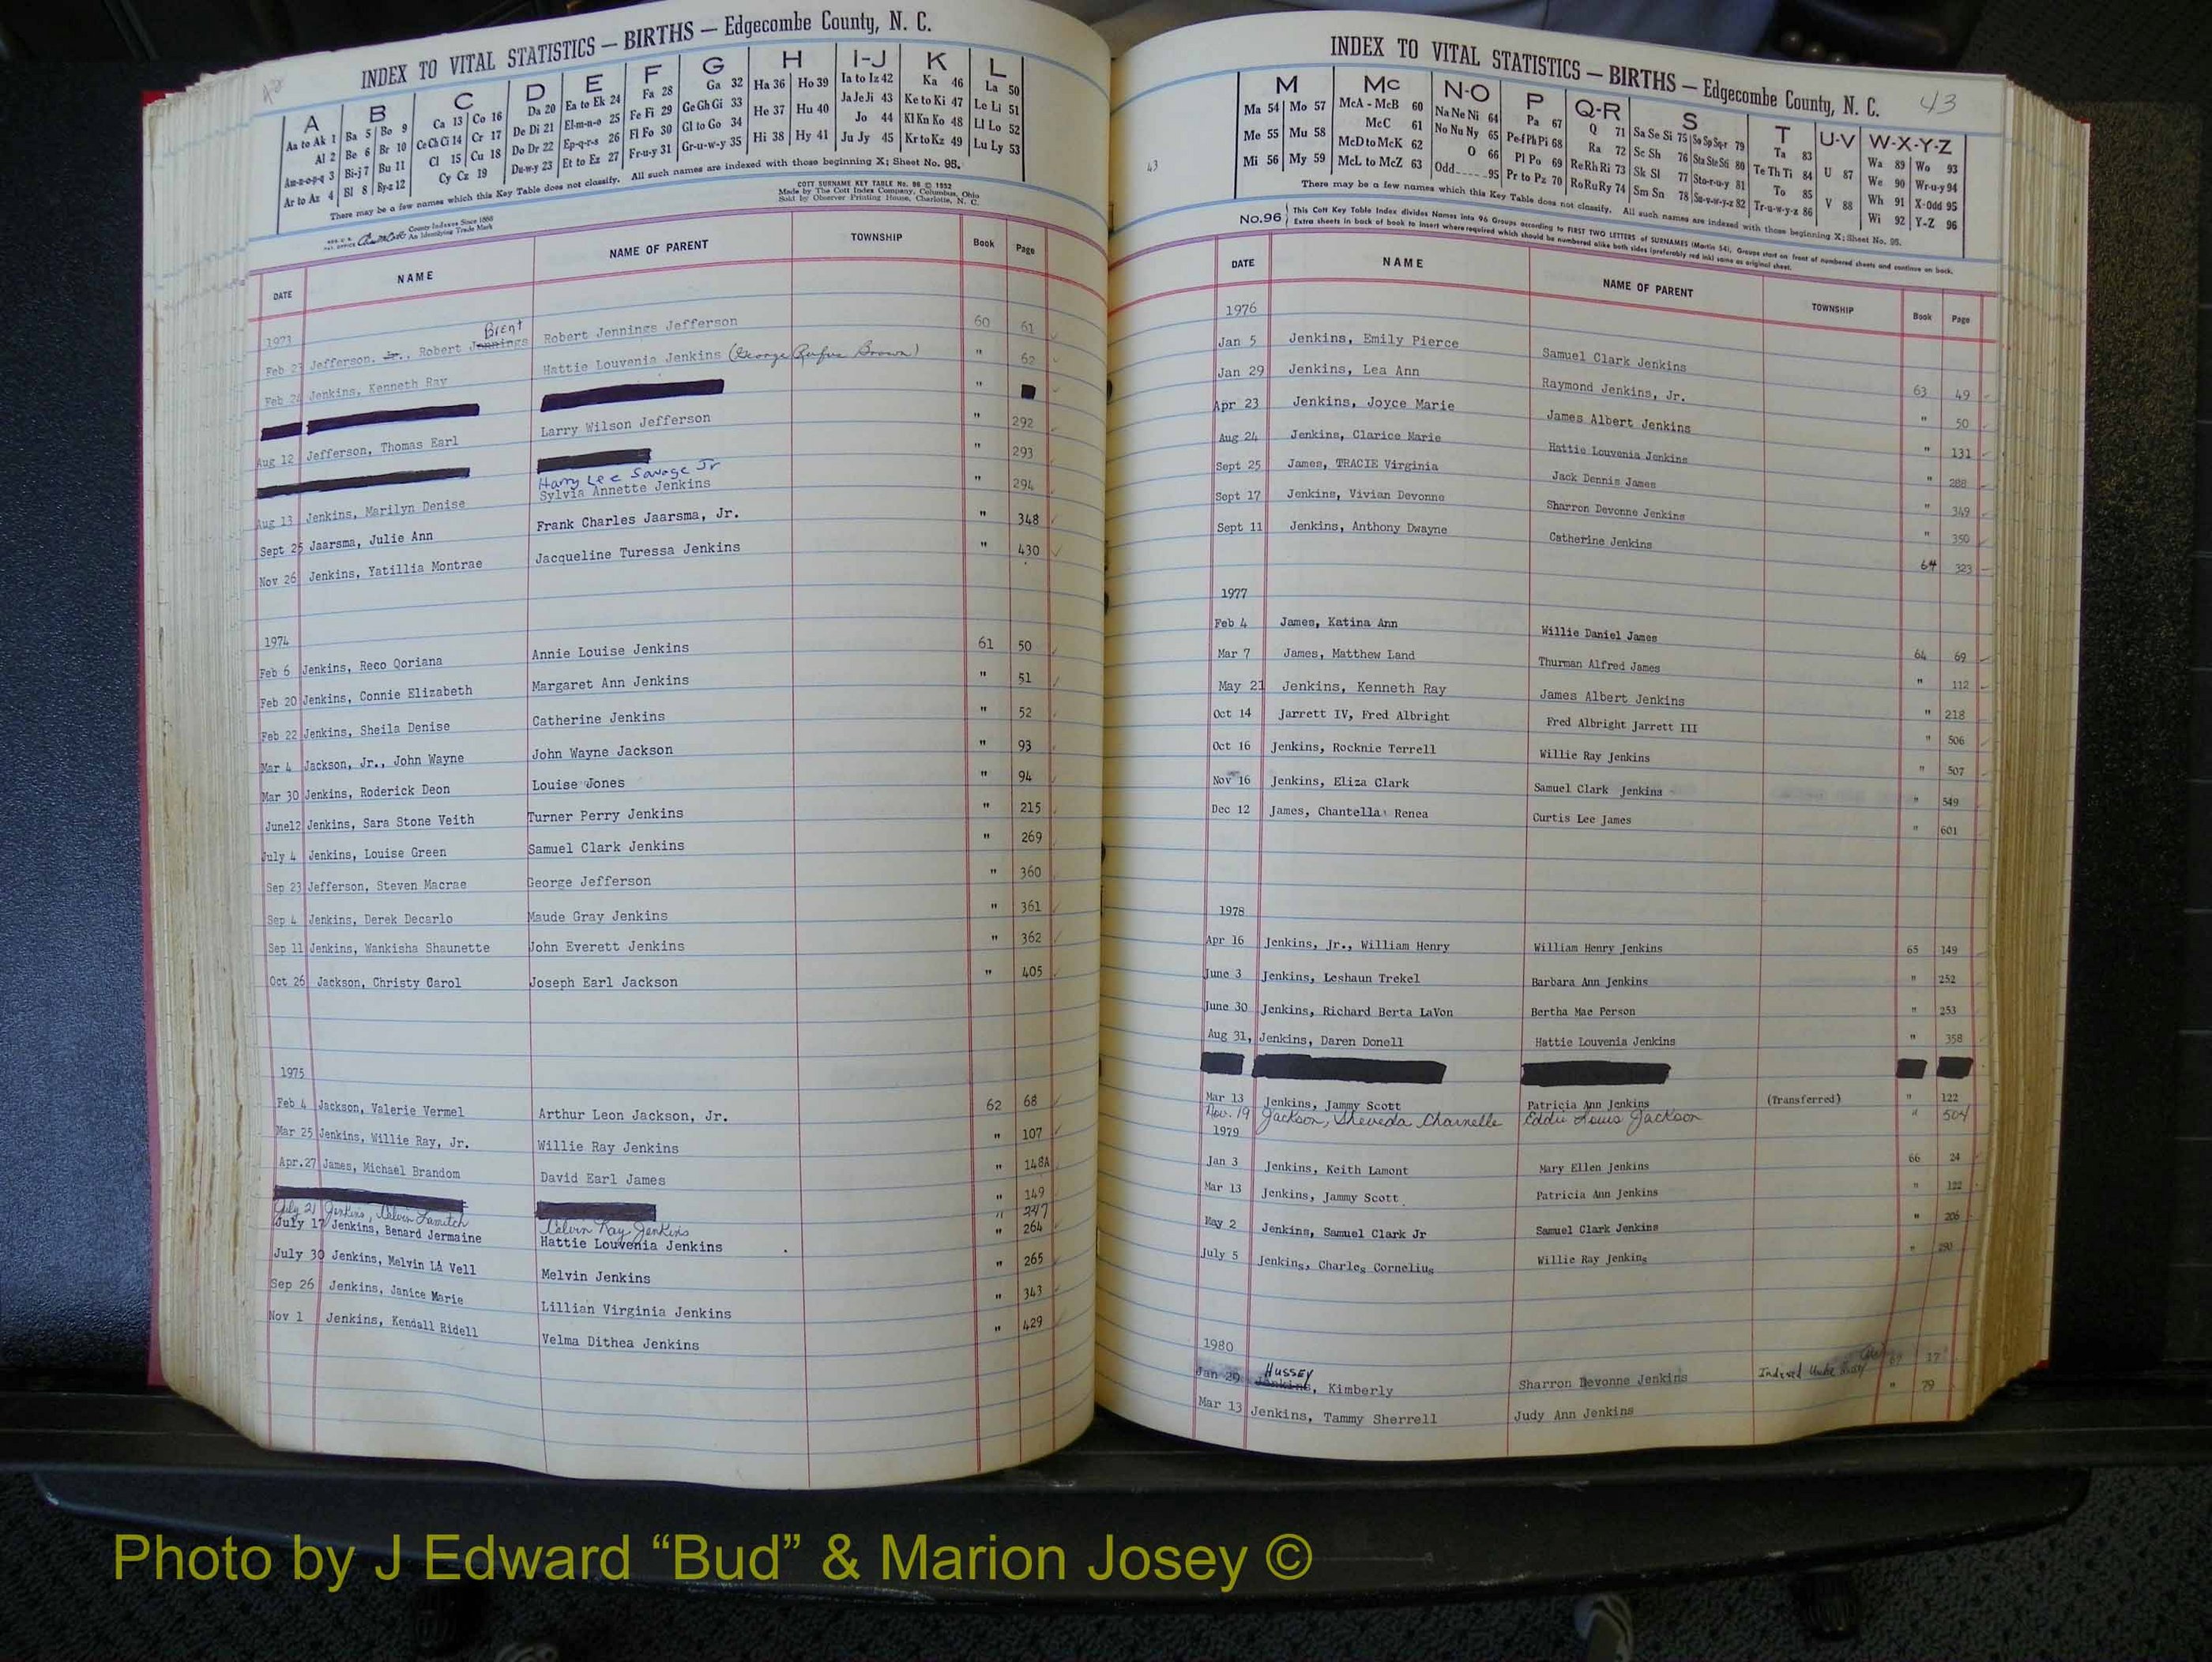 INDEX TO VITAL STATISTICS — BIRTHS — Edgecombe County, N. C.
A B C D E F G H I-J K L
Aa to Ak 1 Ba 5 Bo 9 Ca 13 Co 16 Da 20 Ea to Ek 24 Fa 28 Ga 32 Ha 36 Ho 39 Ia to Iz 42 Ka 46 La 50
Al 2 Be 6 Br 10 Ce Ch Ci 14 Cr 17 De Di 21 El-m-n-o 25 Fe Fi 29 Ge Gh Gi 33 He 37 Hu 40 Ja Je Ji 43 Ke to Ki 47 Le Li 51
Am-n-o-p-q 3 Bi-j 7 Bu 11 Cl 15 Cu 18 Do Dr 22 Ep-q-r-s 26 Fl Fo 30 Gl to Go 34 Hi 38 Hy 41 Jo 44 Kl Kn Ko 48 Ll Lo 52
Ar to Az 4 Bl 8 By-z 12 Cy Cz 19 Du-w-y 23 Et to Ez 27 Fr-u-y 31 Gr-u-w-y 35 Ju Jy 45 Kr to Kz 49 Lu Ly 53
There may be a few names which this Key Table does not classify. All such names are indexed with those beginning X; Sheet No. 95.
COTT SURNAME KEY TABLE No. 96 © 1952
Made by The Cott Index Company, Columbus, Ohio
Sold by Observer Printing House, Charlotte, N. C.
County Indexes Since 1888
An Identifying Trade Mark
DATE NAME NAME OF PARENT TOWNSHIP Book Page
1973
Brent
Feb 23 Jefferson, Jr., Robert Jennings Robert Jennings Jefferson 60 61
Feb 24 Jenkins, Kenneth Ray Hattie Louvenia Jenkins (George Rufus Brown) " 62
"
Aug 12 Jefferson, Thomas Earl Larry Wilson Jefferson " 292
" 293
Harry Lee Savage Jr
Aug 13 Jenkins, Marilyn Denise Sylvia Annette Jenkins " 294
Sept 25 Jaarsma, Julie Ann Frank Charles Jaarsma, Jr. " 348
Nov 26 Jenkins, Yatillia Montrae Jacqueline Turessa Jenkins " 430
1974
Feb 6 Jenkins, Reco Qoriana Annie Louise Jenkins 61 50
Feb 20 Jenkins, Connie Elizabeth Margaret Ann Jenkins " 51
Feb 22 Jenkins, Sheila Denise Catherine Jenkins " 52
Mar 4 Jackson, Jr., John Wayne John Wayne Jackson " 93
Mar 30 Jenkins, Roderick Deon Louise Jones " 94
June12 Jenkins, Sara Stone Veith Turner Perry Jenkins " 215
July 4 Jenkins, Louise Green Samuel Clark Jenkins " 269
Sep 23 Jefferson, Steven Macrae George Jefferson " 360
Sep 4 Jenkins, Derek Decarlo Maude Gray Jenkins " 361
Sep 11 Jenkins, Wankisha Shaunette John Everett Jenkins " 362
Oct 26 Jackson, Christy Carol Joseph Earl Jackson " 405
1975
Feb 4 Jackson, Valerie Vermel Arthur Leon Jackson, Jr. 62 68
Mar 25 Jenkins, Willie Ray, Jr. Willie Ray Jenkins " 107
Apr.27 James, Michael Brandom David Earl James " 148A
" 149
July 21 Jenkins, Kelvin Lamitch Kelvin Ray Jenkins " 247
July 17 Jenkins, Benard Jermaine Hattie Louvenia Jenkins " 264
July 30 Jenkins, Melvin LA Vell Melvin Jenkins " 265
Sep 26 Jenkins, Janice Marie Lillian Virginia Jenkins " 343
Nov 1 Jenkins, Kendall Ridell Velma Dithea Jenkins " 429
INDEX TO VITAL STATISTICS — BIRTHS — Edgecombe County, N. C. 43
43
M Mc N-O P Q-R S T U-V W-X-Y-Z
Ma 54 Mo 57 McA - McB 60 Na Ne Ni 64 Pa 67 Q 71 Sa Se Si 75 So Sp Sq-r 79 Ta 83 U 87 Wa 89 Wo 93
Me 55 Mu 58 McC 61 No Nu Ny 65 Pe-f Ph Pi 68 Ra 72 Sc Sh 76 Sta Ste Sti 80 Te Th Ti 84 V 88 We 90 Wr-u-y 94
Mi 56 My 59 McD to McK 62 O 66 Pl Po 69 Re Rh Ri 73 Sk Sl 77 Sto-r-u-y 81 To 85 Wh 91 X-Odd 95
McL to McZ 63 Odd 95 Pr to Pz 70 Ro Ru Ry 74 Sm Sn 78 Su-v-w-y-z 82 Tr-u-w-y-z 86 Wi 92 Y-Z 96
There may be a few names which this Key Table does not classify. All such names are indexed with those beginning X; Sheet No. 95.
No.96 This Cott Key Table Index divides Names into 96 Groups according to FIRST TWO LETTERS of SURNAMES (Martin 54). Groups start on front of numbered sheets and continue on back.
Extra sheets in back of book to insert where required which should be numbered alike both sides (preferably red ink) same as original sheet.
DATE NAME NAME OF PARENT TOWNSHIP Book Page
1976
Jan 5 Jenkins, Emily Pierce Samuel Clark Jenkins 63 49
Jan 29 Jenkins, Lea Ann Raymond Jenkins, Jr. " 50
Apr 23 Jenkins, Joyce Marie James Albert Jenkins " 131
Aug 24 Jenkins, Clarice Marie Hattie Louvenia Jenkins " 288
Sept 25 James, TRACIE Virginia Jack Dennis James " 349
Sept 17 Jenkins, Vivian Devonne Sharron Devonne Jenkins " 350
Sept 11 Jenkins, Anthony Dwayne Catherine Jenkins 64 323
1977
Feb 4 James, Katina Ann Willie Daniel James 64 69
Mar 7 James, Matthew Land Thurman Alfred James " 112
May 21 Jenkins, Kenneth Ray James Albert Jenkins " 218
Oct 14 Jarrett IV, Fred Albright Fred Albright Jarrett III " 506
Oct 16 Jenkins, Rocknie Terrell Willie Ray Jenkins " 507
Nov 16 Jenkins, Eliza Clark Samuel Clark Jenkins " 549
Dec 12 James, Chantella Renea Curtis Lee James " 601
1978
Apr 16 Jenkins, Jr., William Henry William Henry Jenkins 65 149
June 3 Jenkins, Leshaun Trekel Barbara Ann Jenkins " 252
June 30 Jenkins, Richard Berta LaVon Bertha Mae Person " 253
Aug 31, Jenkins, Daren Donell Hattie Louvenia Jenkins " 358
Mar 13 Jenkins, Jammy Scott Patricia Ann Jenkins (Transferred) " 122
Nov. 19 Jackson, Sheveda Charnelle Eddie Louis Jackson " 504
1979
Jan 3 Jenkins, Keith Lamont Mary Ellen Jenkins 66 24
Mar 13 Jenkins, Jammy Scott Patricia Ann Jenkins " 122
May 2 Jenkins, Samuel Clark Jr Samuel Clark Jenkins " 206
July 5 Jenkins, Charles Cornelius Willie Ray Jenkins "
1980
Hussey
Jan 29 Jenkins, Kimberly Sharron Devonne Jenkins Indexed Under 17
Mar 13 Jenkins, Tammy Sherrell Judy Ann Jenkins " 79
Photo by J Edward “Bud” & Marion Josey ©